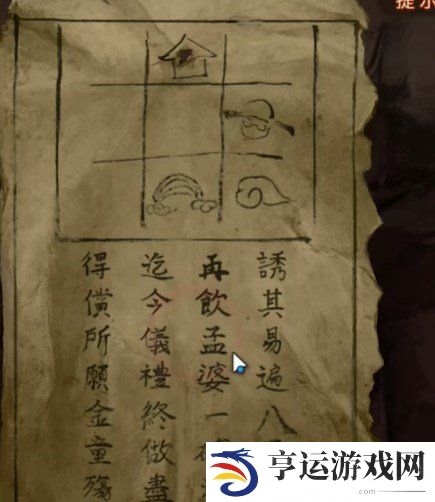 提示
誘其易遍八
再飲孟婆一碗
迄今儀禮終做盡
得償所願金童殤
亨运游戏网